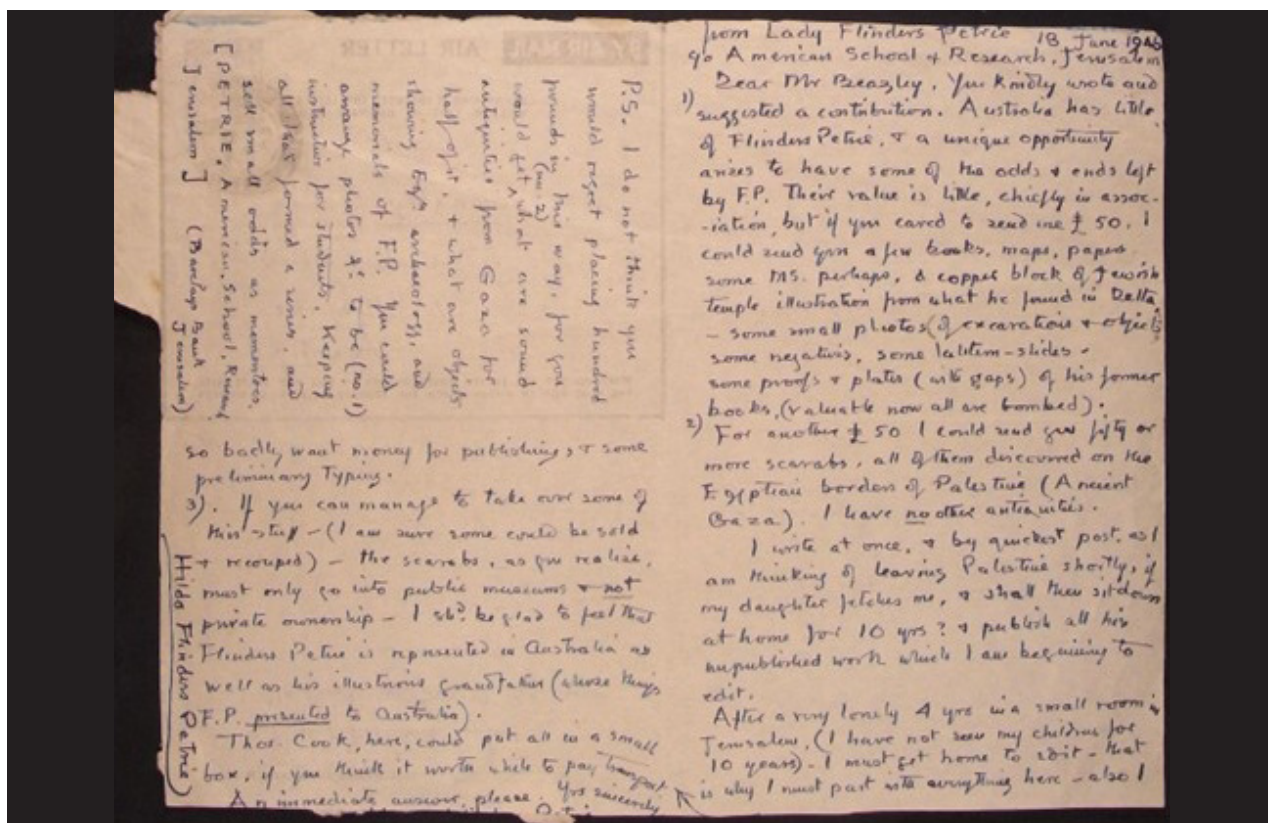 from Lady Flinders Petrie 18 June 1946
c/o American School of Research, Jerusalem
Dear Mr Beasley, You kindly wrote and
1) suggested a contribution. Australia has little
of Flinders Petrie, & a unique opportunity
arises to have some of the odds & ends left
by F.P. Their value is little, chiefly in assoc-
-iation, but if you cared to send me £50, I
could send you a few books, maps, papers
some MS. perhaps, a copper block of Jewish
temple illustration from what he found in Delta
- some small photos (of excavations & objects
some negatives, some lantern-slides.
some proofs & plates (with gaps) of his former
books, (valuable now all are bombed).
2) For another £50 I could send you fifty or
more scarabs, all of them discovered on the
Egyptian borders of Palestine (Ancient
Gaza). I have no other antiquities.
I write at once, & by quickest post, as I
am thinking of leaving Palestine shortly, if
my daughter fetches me, & shall then sit down
at home for 10 yrs? & publish all his
unpublished work which I am beginning to
edit.
After a very lonely 4 yrs in a small room in
Jerusalem, (I have not seen my children for
10 years) - I must get home to edit - that
is why I must part with everything here - also I
so badly want money for publishing, & some
preliminary typing.
3). If you can manage to take over some of
this stuff - (I am sure some could be sold
& recouped) - the scarabs, as you realise,
must only go into public museums & not
private ownership - I shd. be glad to feel that
Flinders Petrie is represented in Australia as
well as his illustrious grandfather (whose things
F.P. presented to Australia).
Thos. Cook, here, could put all in a small
box, if you think it worth while to pay transport.
An immediate answer, please. Yrs sincerely
Hilda Flinders Petrie
P.S. I do not think you
would regret placing hundred
pounds in this way, for you
would get (no. 2) what are sound
antiquities from Gaza for
half of it, & what are objects
showing Egn. archaeology, and
memorials of F.P. You could
arrange photos &c to be (no. 1)
instructive for students, keeping
all that formed a series, and
sell small odds as mementoes.
[PETRIE, American School, Research
Jerusalem] (Barclays Bank
Jerusalem)
AIR LETTER